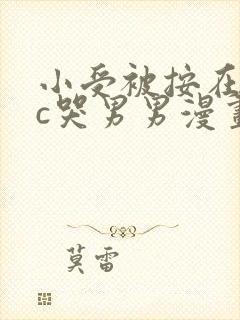 小受被按在
c哭男男漫畫
莫雷